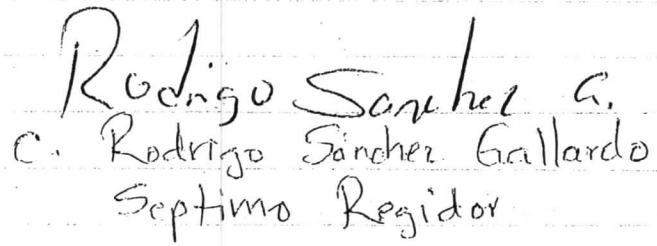 Rodrigo Sanchez G.
C. Rodrigo Sánchez Gallardo
Septimo Regidor